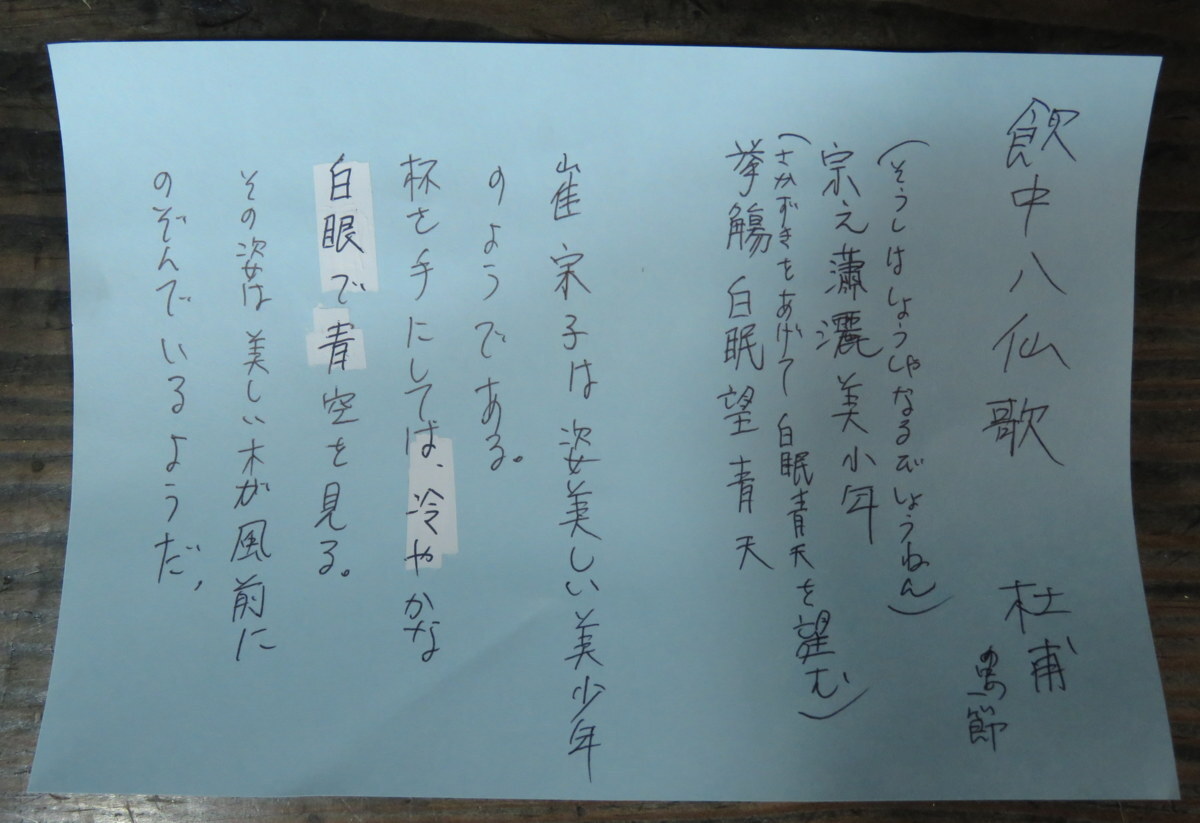 飲中八仙歌 杜甫
の一節
(そうしはしょうしゃなるびしょうねん)
宗之瀟灑美小年
(さかずきをあげて白眠青天を望む)
挙觴白眠望青天
崔宗子は姿美しい美少年
のようである。
杯を手にしては、冷やかな
白眼で青空を見る。
その姿は美しい木が風前に
のぞんでいるようだ、